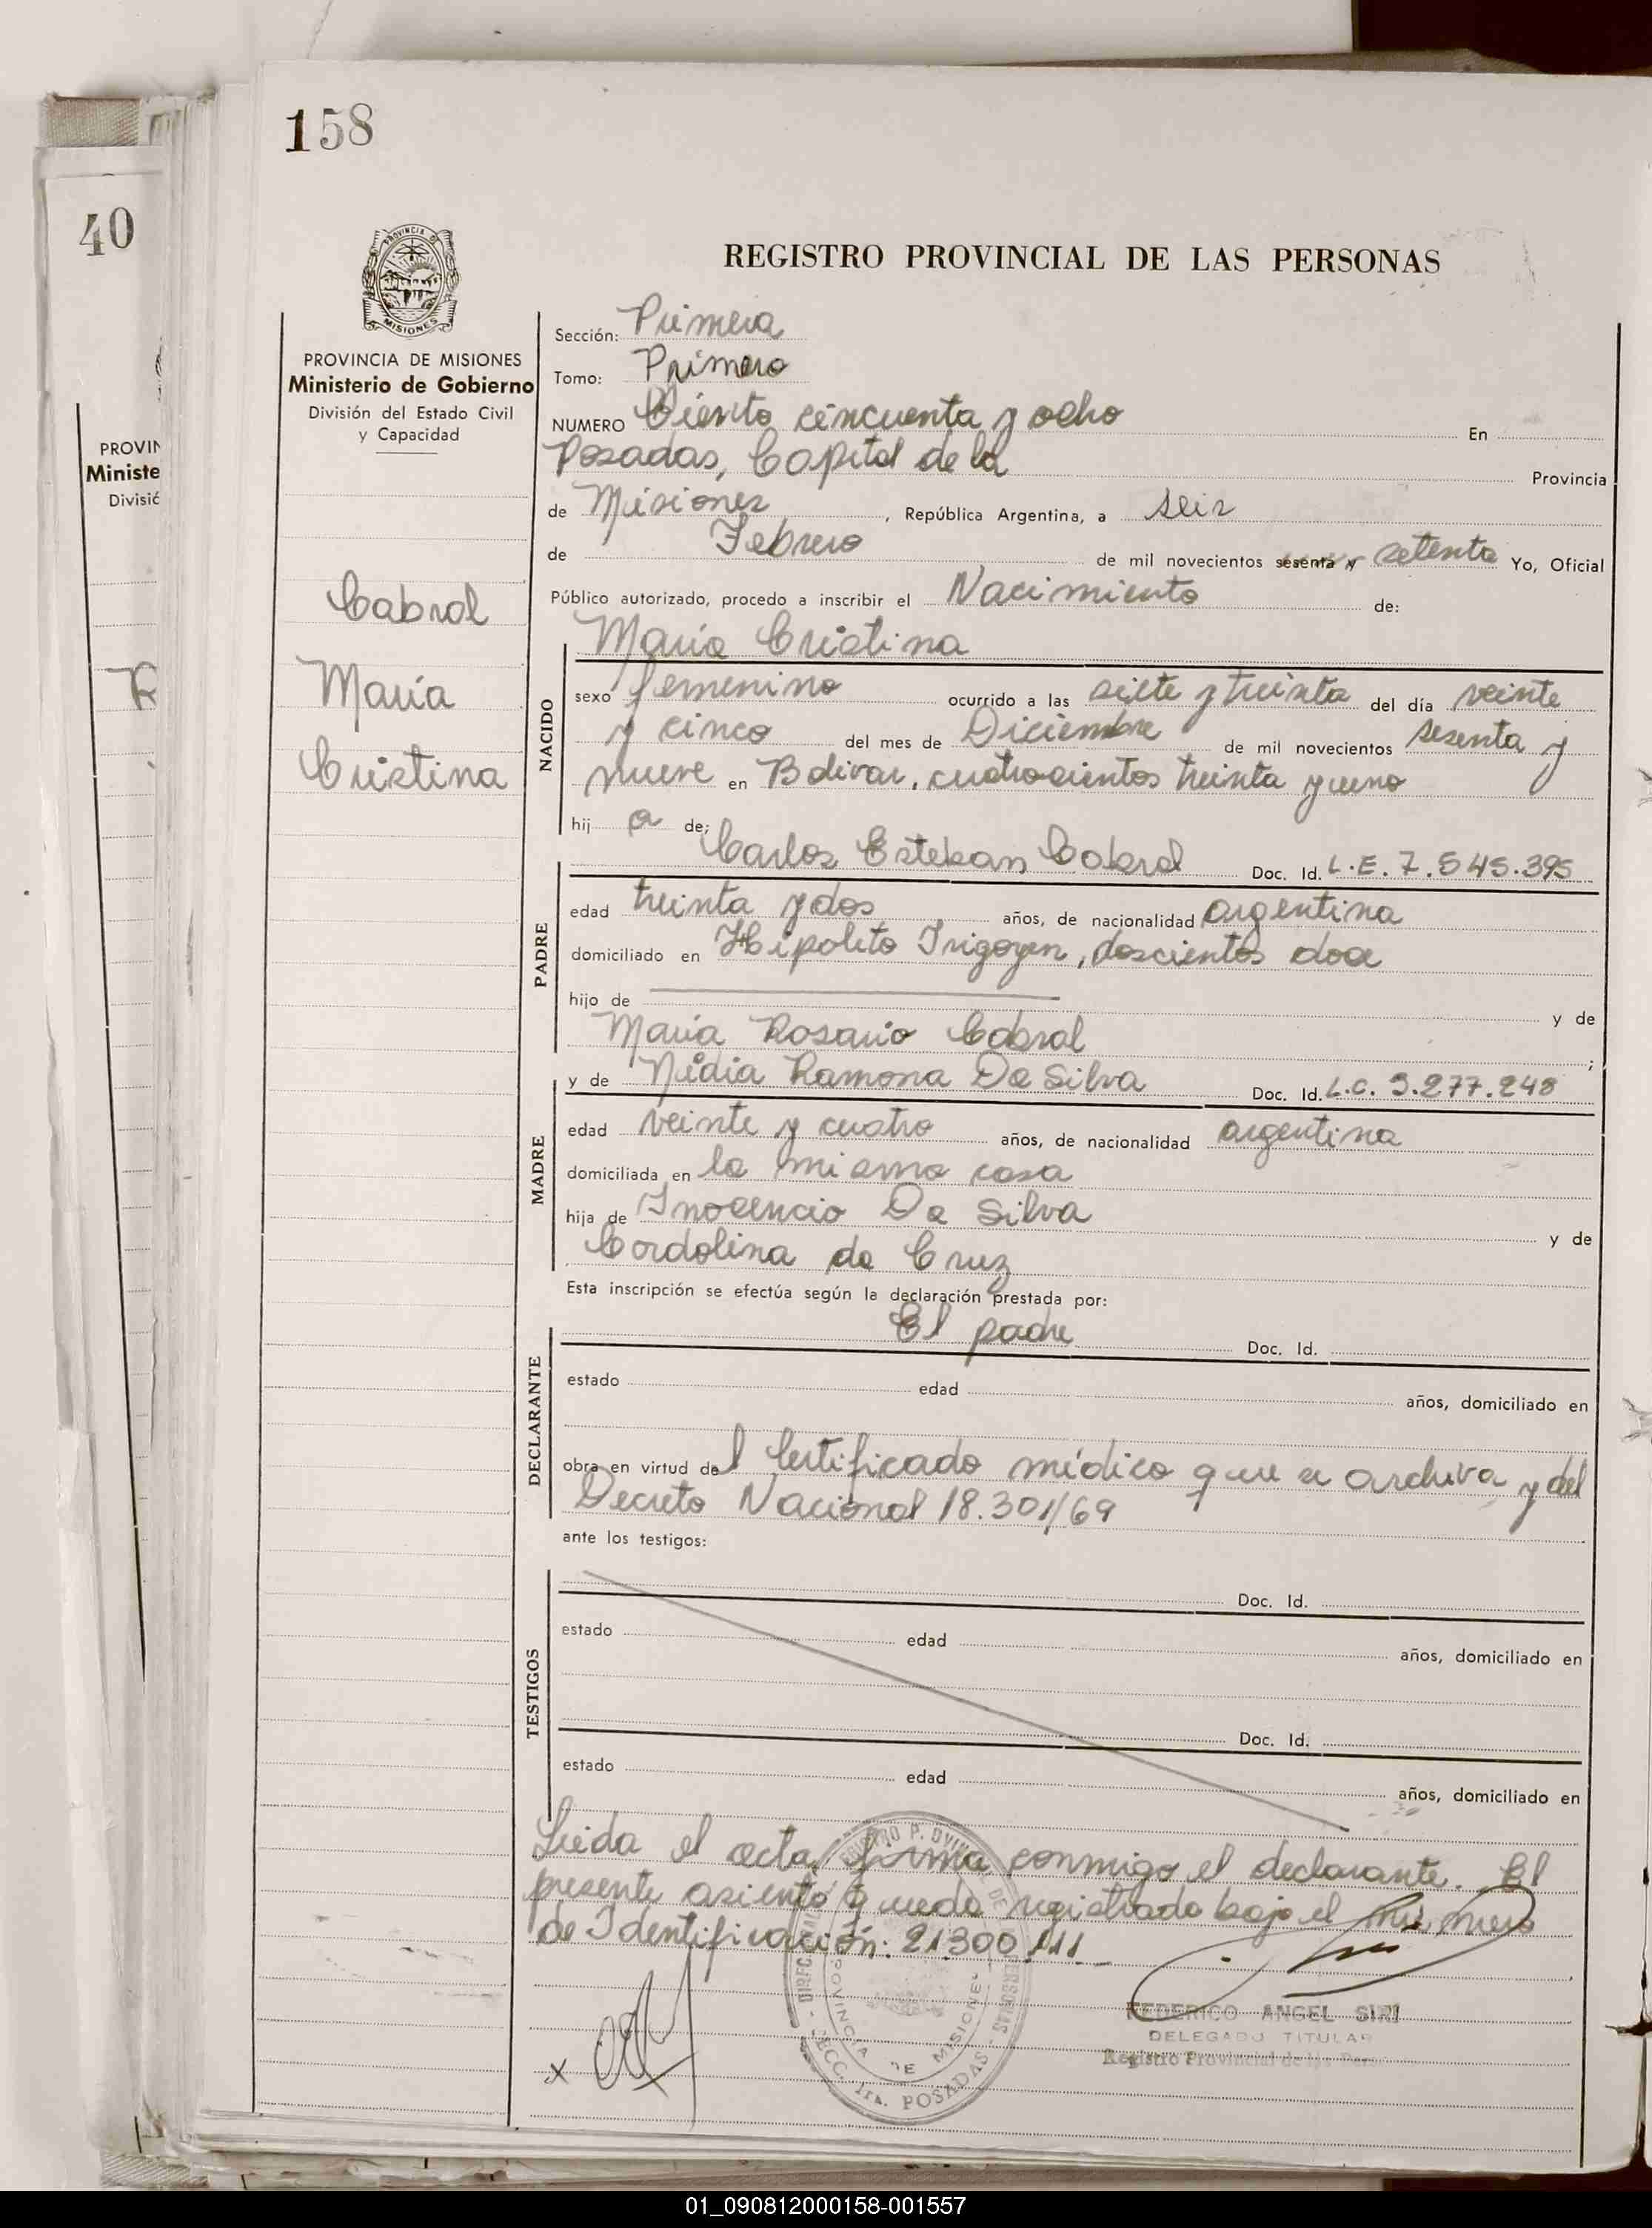 158
40
PROVINCIA DE MISIONES
REGISTRO PROVINCIAL DE LAS PERSONAS
PROVINCIA DE MISIONES
Ministerio de Gobierno
División del Estado Civil
y Capacidad
PROVIN
Ministe
Divisió
Cabral
María
Cristina
Sección: Primera
Tomo: Primero
NUMERO Ciento cincuenta y ocho En
Posadas, Capital de la Provincia
de Misiones, República Argentina, a seis
de Febrero de mil novecientos sesenta y setenta Yo, Oficial
Público autorizado, procedo a inscribir el Nacimiento de:
María Cristina
NACIDO
sexo femenino ocurrido a las siete y treinta del día veinte
y cinco del mes de Diciembre de mil novecientos sesenta y
nueve en Bolivar, cuatrocientos treinta y uno
hij a de;
Carlos Esteban Cabral Doc. Id. L.E. 7.545.395
PADRE
edad treinta y dos años, de nacionalidad argentina
domiciliado en Hipolito Irigoyen, doscientos doce
hijo de y de
María Rosario Cabral ;
y de Nidia Ramona Da Silva Doc. Id. L.C. 5.277.248
MADRE
edad veinte y cuatro años, de nacionalidad argentina
domiciliada en la misma casa
hija de Inocencio Da Silva y de
Cordolina da Cruz
Esta inscripción se efectúa según la declaración prestada por:
El padre Doc. Id.
DECLARANTE
estado edad años, domiciliado en
obra en virtud del Certificado médico que se archiva y del
Decreto Nacional 18.301/69
ante los testigos:
Doc. Id.
TESTIGOS
estado edad años, domiciliado en
Doc. Id.
estado edad años, domiciliado en
Leida el acta, firma conmigo el declarante. El
presente asiento queda registrado bajo el número
de Identificación: 21.300.111
SECC. 1ra. POSADAS
PROVINCIA DE MISIONES
FEDERICO ANGEL SIRI
DELEGADO TITULAR
Registro Provincial de las Pers
x
01_090812000158-001557